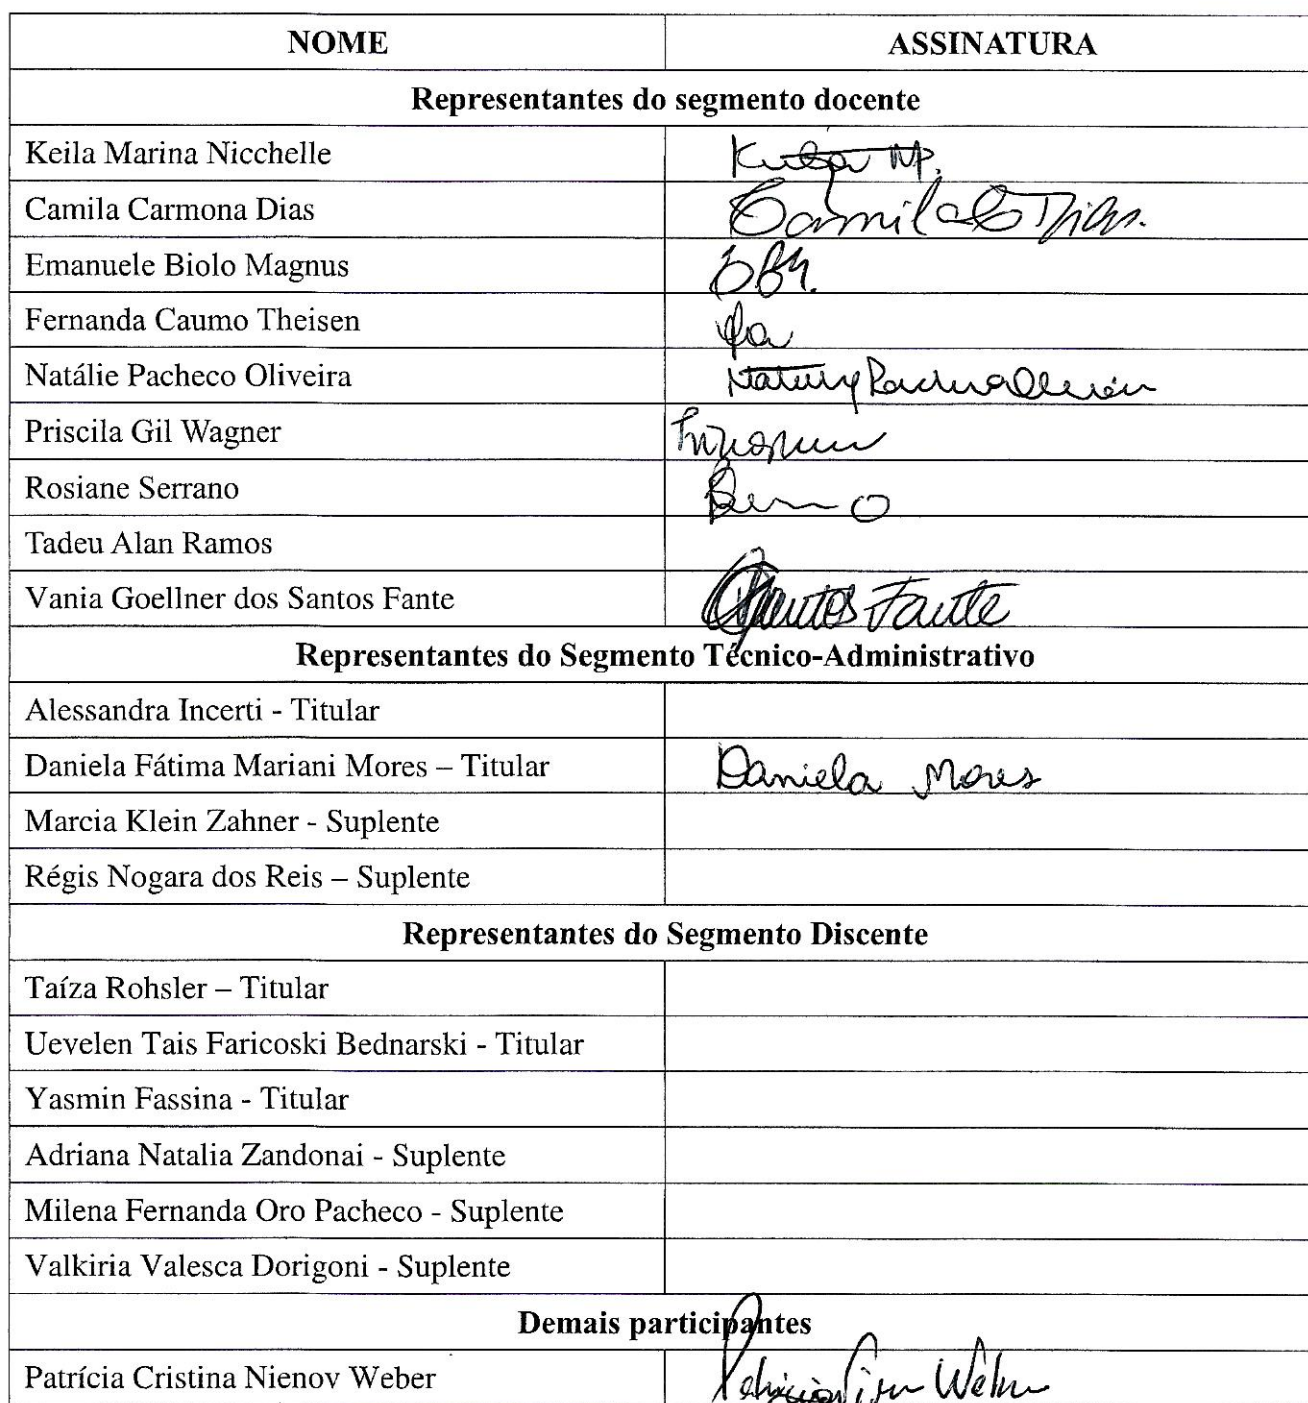 NOME ASSINATURA
Representantes do segmento docente
Keila Marina Nicchelle
Camila Carmona Dias Camila C Dias.
Emanuele Biolo Magnus EBM.
Fernanda Caumo Theisen
Natálie Pacheco Oliveira
Priscila Gil Wagner
Rosiane Serrano
Tadeu Alan Ramos
Vania Goellner dos Santos Fante Santos Fante
Representantes do Segmento Técnico-Administrativo
Alessandra Incerti - Titular
Daniela Fátima Mariani Mores – Titular Daniela Mores
Marcia Klein Zahner - Suplente
Régis Nogara dos Reis – Suplente
Representantes do Segmento Discente
Taíza Rohsler – Titular
Uevelen Tais Faricoski Bednarski - Titular
Yasmin Fassina - Titular
Adriana Natalia Zandonai - Suplente
Milena Fernanda Oro Pacheco - Suplente
Valkiria Valesca Dorigoni - Suplente
Demais participantes
Patrícia Cristina Nienov Weber